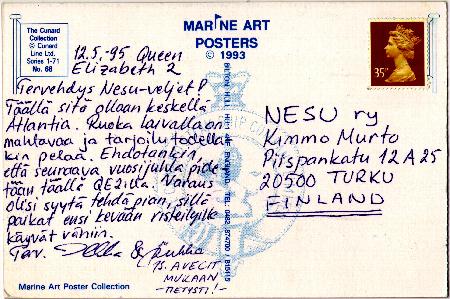 The Cunard
Collection
© Cunard
Line Ltd.
Series 1-71
No. 68
MARINE ART
POSTERS
© 1993
35
12.5.-95 Queen
Elizabeth 2
Tervehdys Nesu-veljet!
Täällä sitä ollaan keskellä
Atlantia. Ruoka laivalla on
mahtavaa ja tarjoilu todella-
kin pelaa. Ehdotankin,
että seuraava vuosijuhla pide-
tään täällä QE2:lla. Varaus
olisi syytä tehdä pian, sillä
paikat ensi kevään risteilyille
käyvät vähiin.
Terv.
& Jukka
PS. AVECIT
MUKAAN
-TIETYSTI!-
NESU ry
Kimmo Murto
Piispankatu 12 A 25
20500 TURKU
FINLAND
HULL ENGLAND TEL: 0482 874700 / 815115
Marine Art Poster Collection